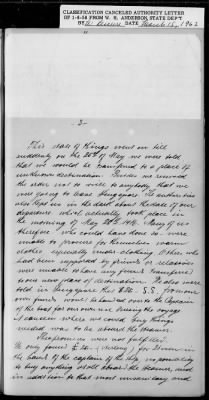 CLASSIFICATION CANCELED AUTHORITY LETTER
OF 1-8-58 FROM W. H. ANDERSON, STATE DEPT.
BY March 15, 1962
- 3 -
This state of things went on till
suddenly on the 26th of May we were told
that we would be transferred to a place of
unknown destination. Besides we received
the order not to tell to anybody that we
were going to leave Singapore. The authorities
also kept us in the dark about the date of our
departure which actually took place in
the morning of May 28th. Many of us
therefore who could have done so were
unable to provide for themselves warm
clothes especially made clothing. Others who
had been supported by friends or relations
were unable to have any funds transferred
to our new place of destination. We also were
told in Singapore that the S.S.
own funds were to be handed over to the Captain
of the boat for our own use during the voyage
A canteen where we could buy things
needed was to be aboard the steamer.
These promises were not fulfilled.
The only funds
in the hands of the captain of the ship
to buy anything at all aboard the steamer, and
in addition to that most unsanitary and